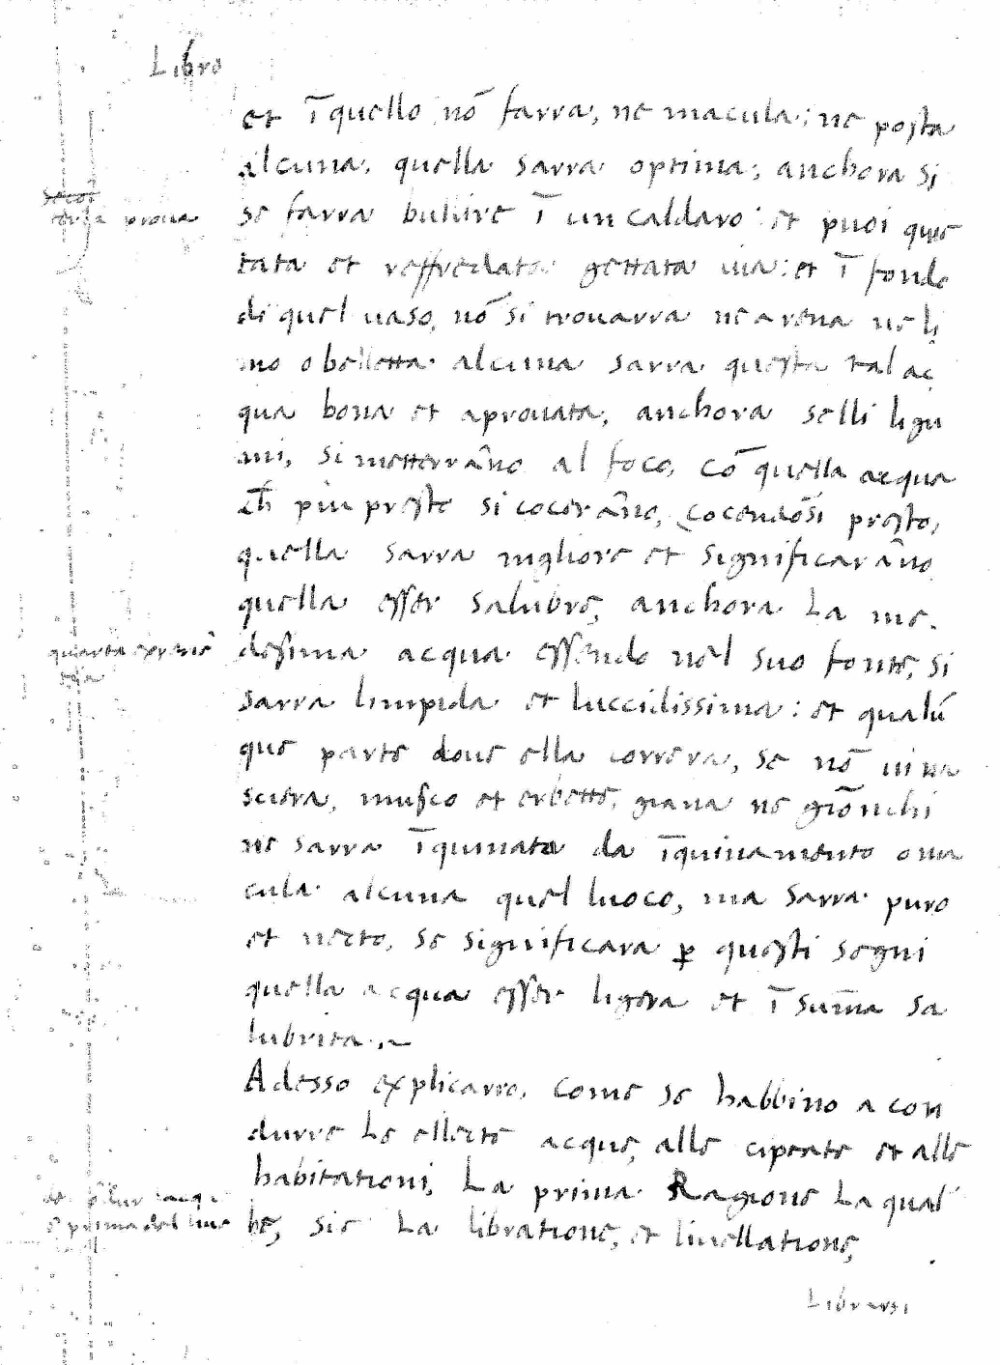 Libro
et ī quello nō farra, ne macula: ne posta
alcuna, quella sarra optima; anchora si
terza proua
se farra bulire ī un caldaro: et puoi quie
tata et reffredata gettata uia: et ī fondo
di quel uaso, nō si trouarra ne arena ne li
mo o belletta alcuna sarra questa tal ac
qua bona et aprouata, anchora selli ligu
mi, si metterrāno al foco, cō quella acqua
et piu presto si cocerāno, cocendōsi presto,
quella sarra migliore et significarāno
quella esser salubre, anchora La me.
quarta
desima acqua essendo nel suo fonte, si
sarra limpida et luccidissima: et qualū
que parte doue ella correra, se nō ui na
scera, musco et erbette, giana ne giōnchi
ne sarra īquinata da īquinamento o ma
cula alcuna quel luoco, ma sarra puro
et necto, se significara ꝑ questi segni
quella acqua esser ligera et ī sum̄a sa
lubrita.~
Adesso explicarro, come se habbino a con
durre Le ellecte acque, alle cipcate et alle
habitationi, La prima Ragione La qual
prima del liue
be, sie La libratione, et liuellatione,
Librarsi